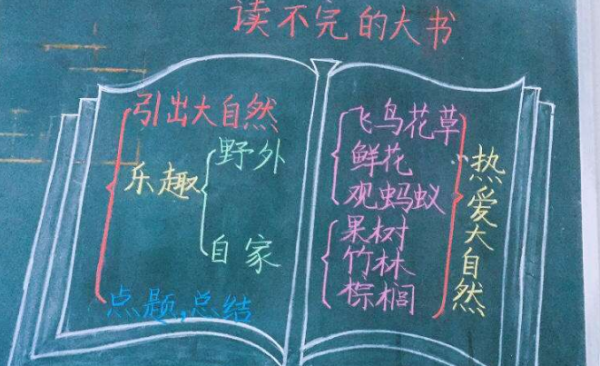 读不完的大书
引出大自然
乐趣
野外
自家
点题,总结
飞鸟花草
鲜花
观蚂蚁
果树
竹林
棕榈
热爱大自然